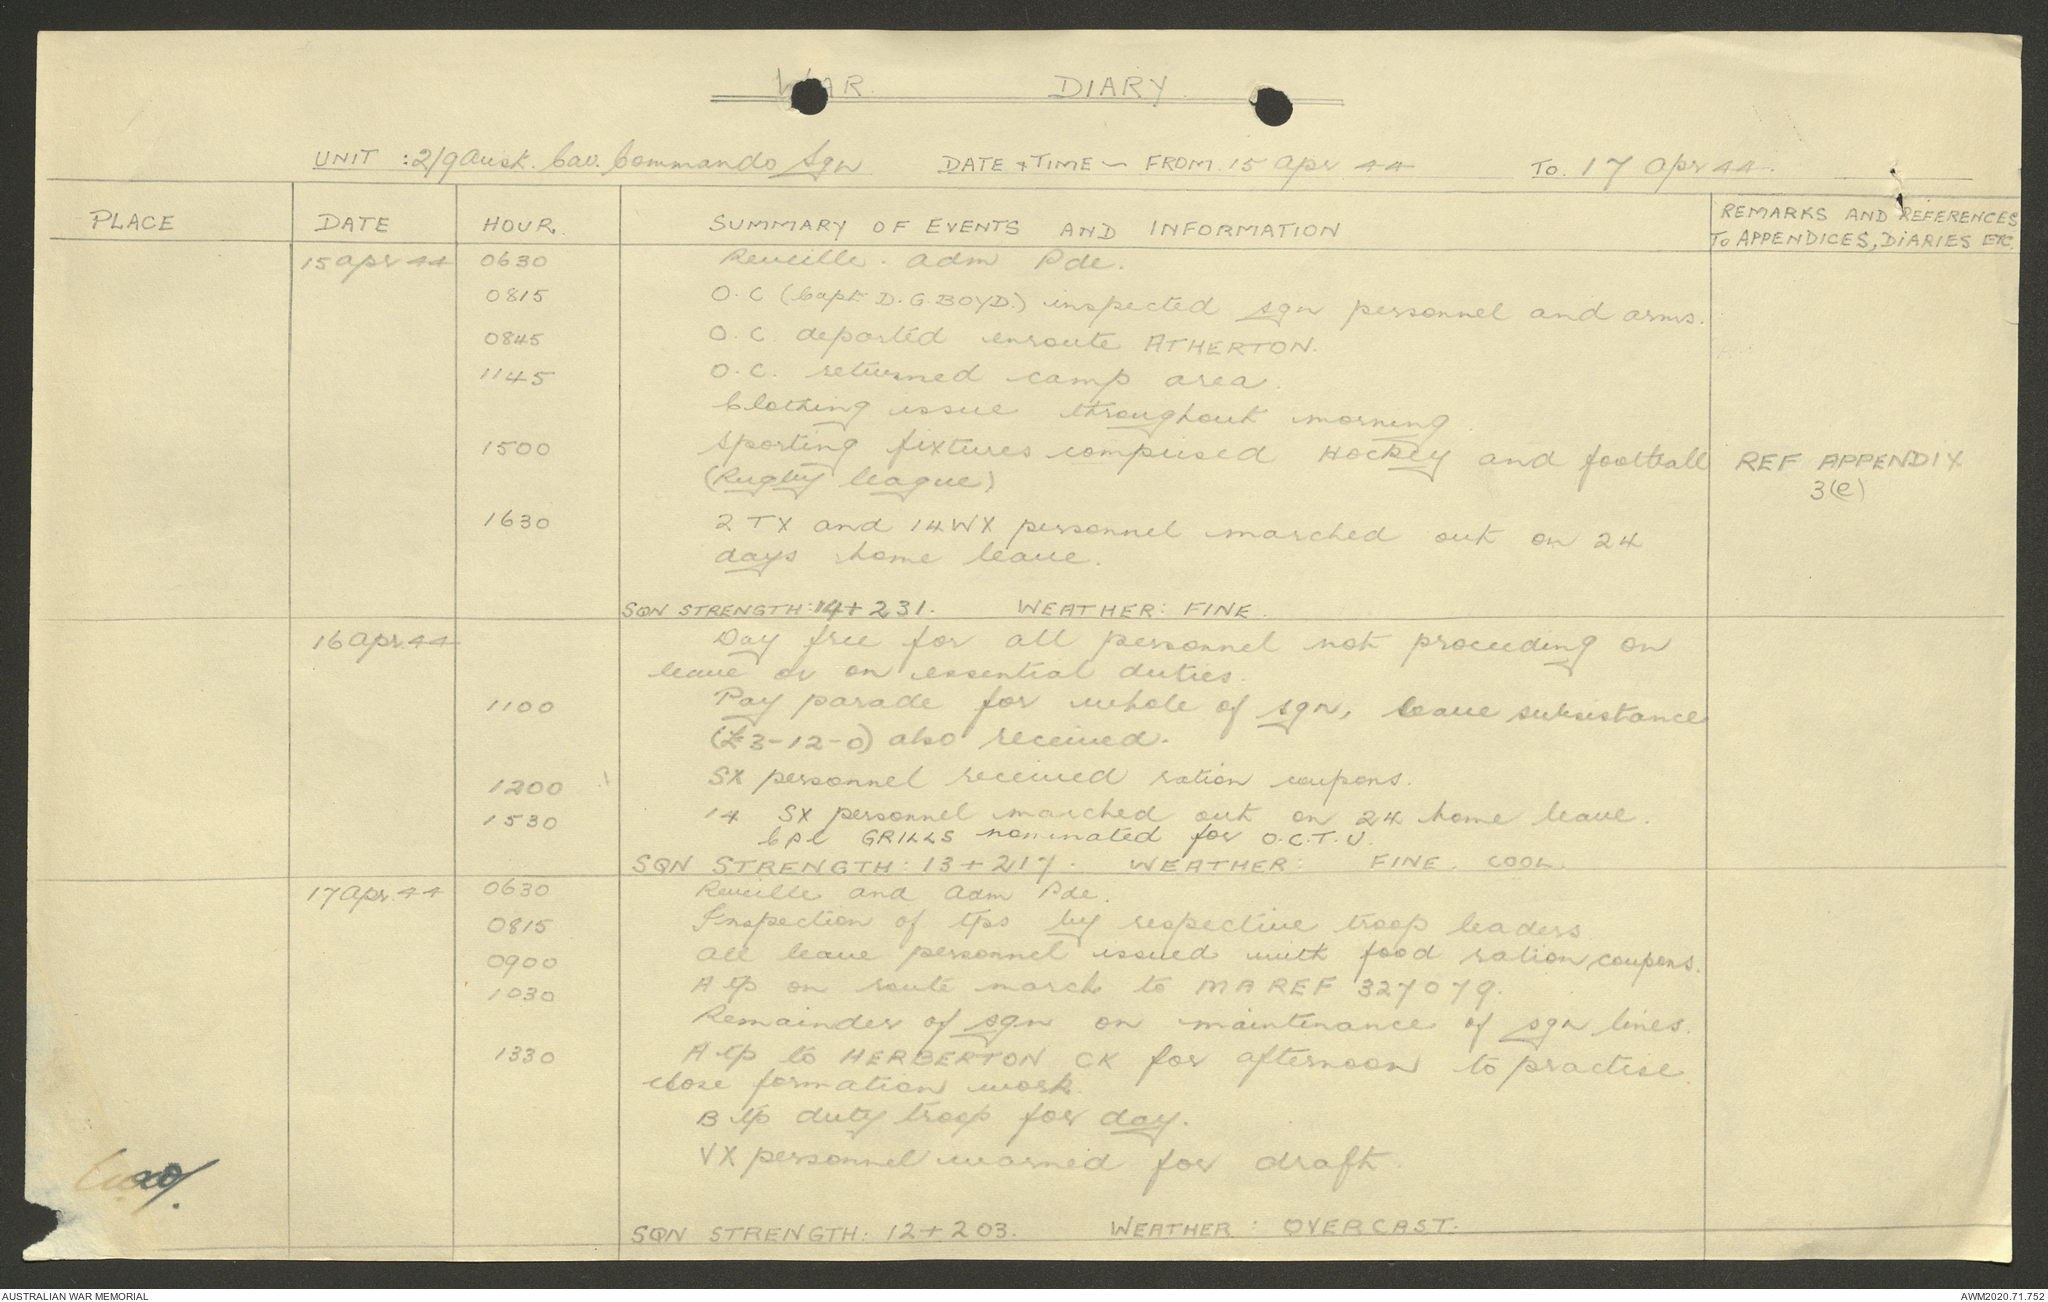 WAR DIARY.
UNIT : 2/9 Aust. Cav. Commando Sqn DATE + TIME - FROM 15 Apr 44 To. 17 Apr 44.
PLACE DATE HOUR. SUMMARY OF EVENTS AND INFORMATION REMARKS AND REFERENCES
To APPENDICES, DIARIES ETC.
15 Apr 44 0630 Reveille. Adm Pde.
0815 O.C (Capt. D.G. BOYD.) inspected sqn personnel and arms.
0845 O.C. departed enroute ATHERTON.
1145 O.C. returned camp area.
Clothing issue throughout morning.
1500 Sporting fixtures comprised Hockey and football REF APPENDIX
(Rugby league) 3(e)
1630 2 TX and 14 WX personnel marched out on 24
days home leave.
SQN STRENGTH: 14 + 231. WEATHER: FINE.
16 Apr. 44 Day free for all personnel not proceeding on
leave or on essential duties.
1100 Pay parade for whole of sqn, leave subsistance
(£3-12-0) also received.
1200 SX personnel received ration coupons.
1530 14 SX personnel marched out on 24 home leave.
Cpl GRILLS nominated for O.C.T.U.
SQN STRENGTH: 13 + 217. WEATHER: FINE. COOL.
17 Apr. 44 0630 Reveille and Adm Pde.
0815 Inspection of tps by respective troop leaders
0900 All leave personnel issued with food ration coupons.
1030 A tp on route march to MAREF 327079.
Remainder of sqn on maintenance of sqn lines.
1330 A tp to HERBERTON CK for afternoon to practise
close formation work.
B tp duty troop for day.
VX personnel warned for draft.
SQN STRENGTH: 12 + 203. WEATHER: OVERCAST.
AUSTRALIAN WAR MEMORIAL AWM2020.71.752